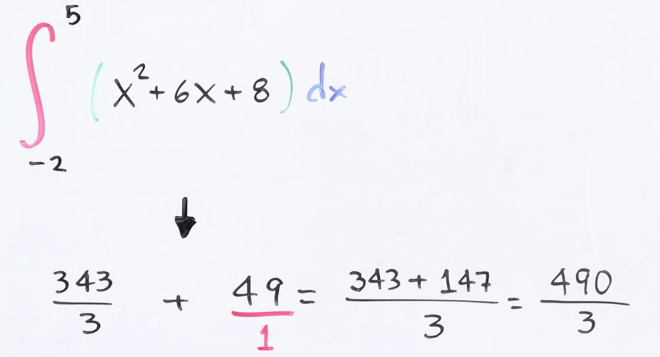 ∫₋₂⁵ (x² + 6x + 8) dx
343/3 + 49/1 = (343 + 147)/3 = 490/3